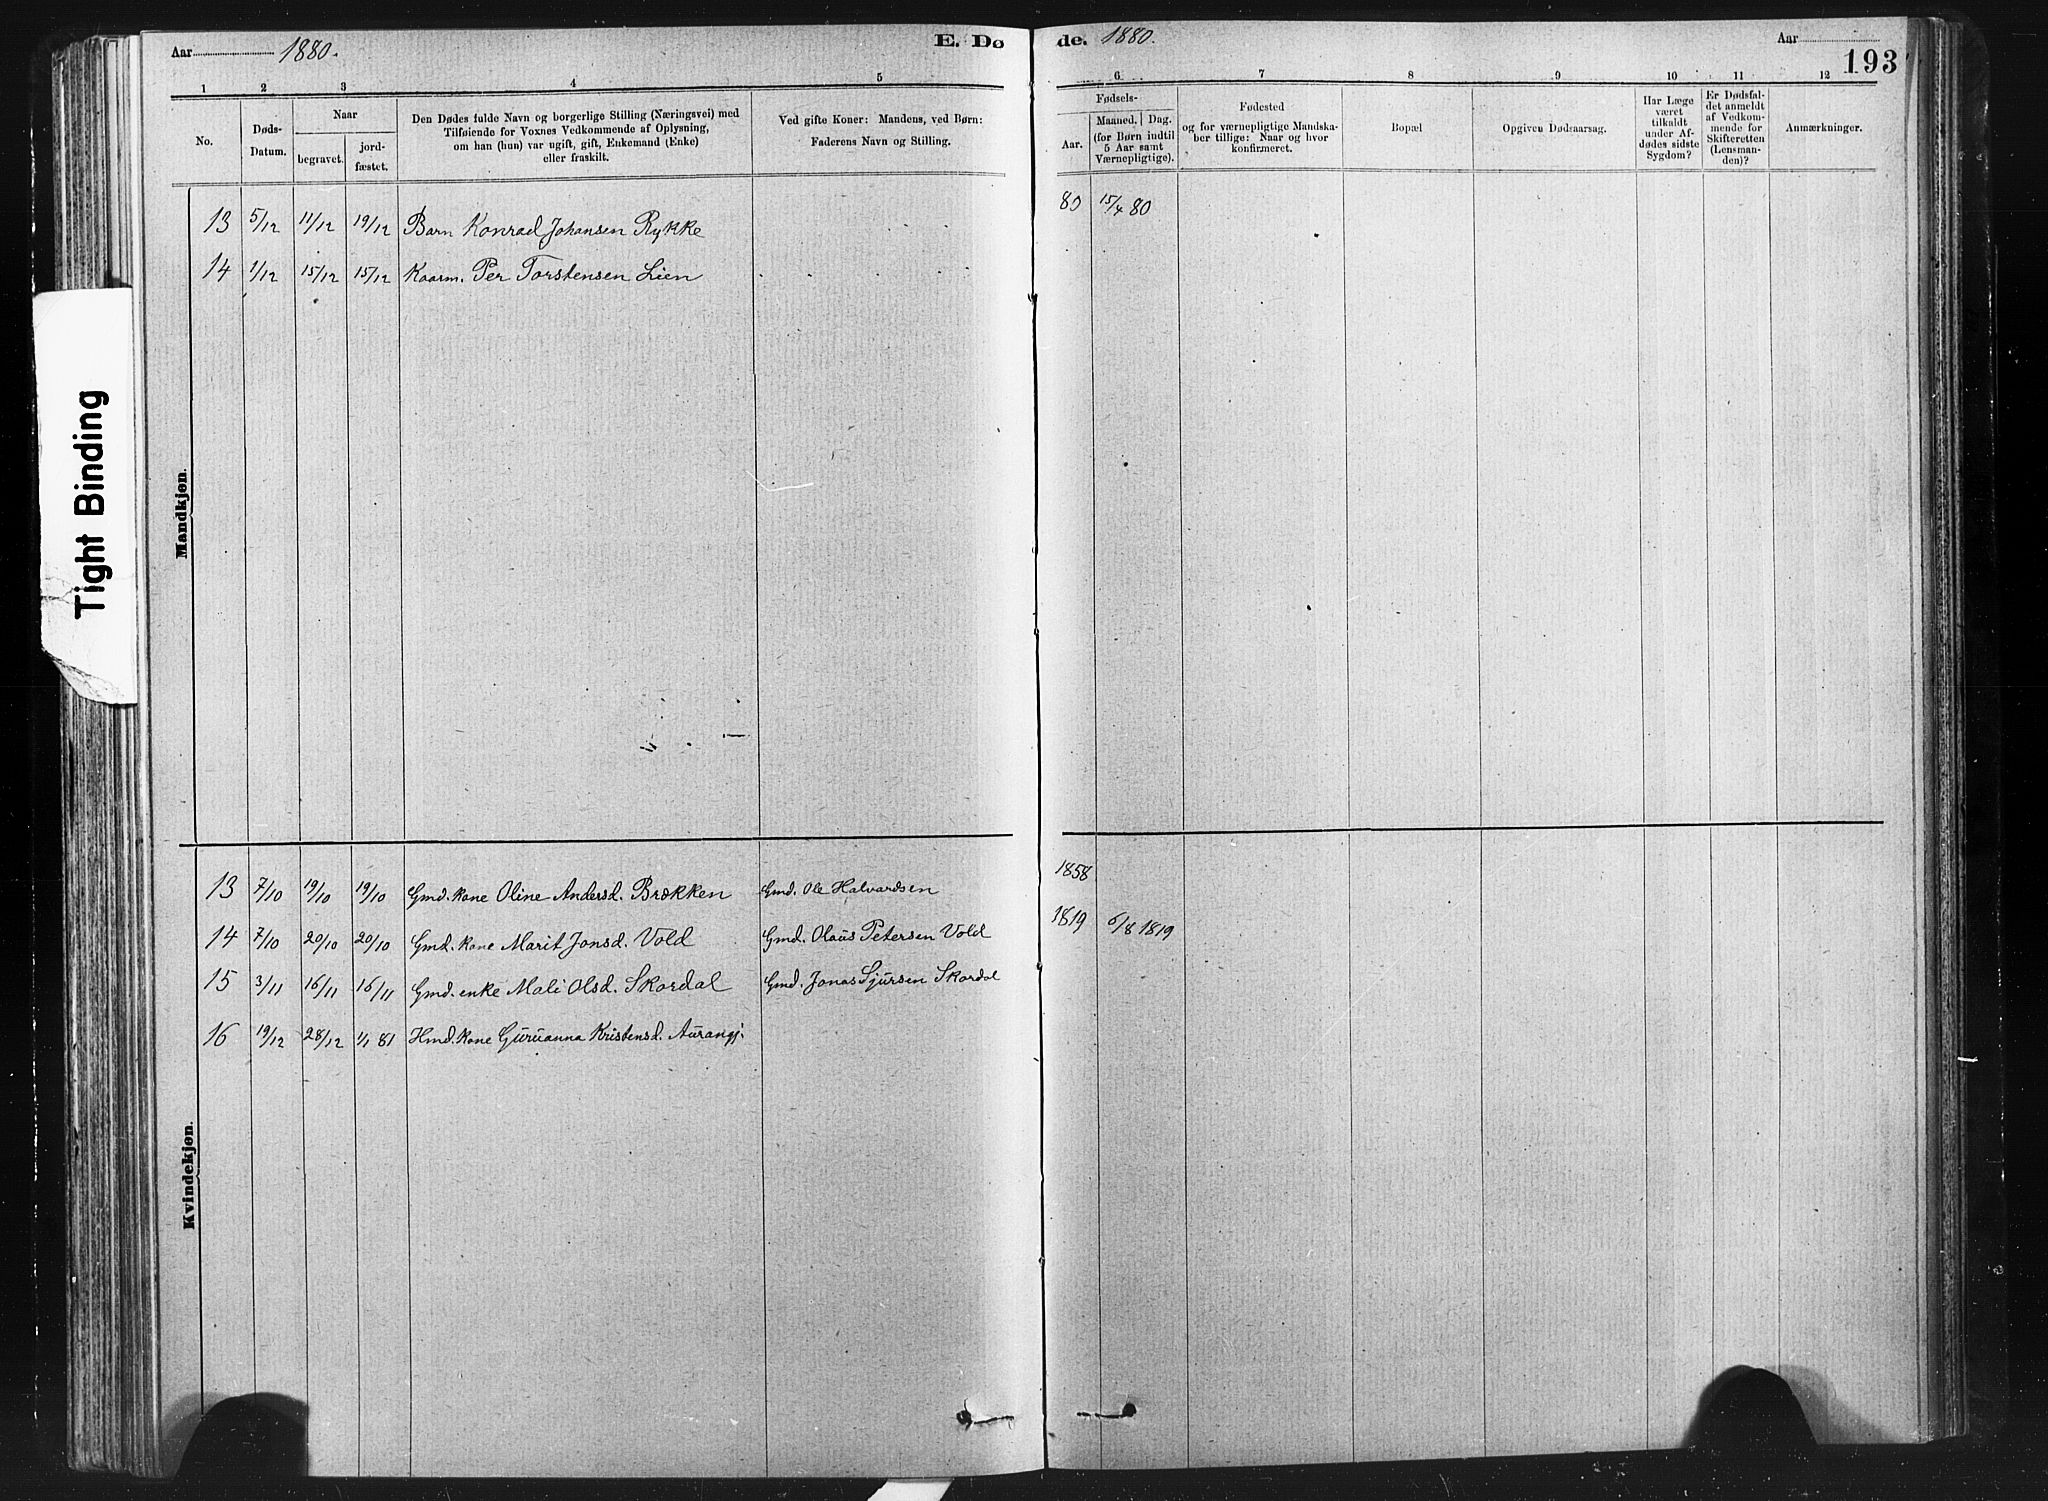 Aar 1880.
E. Dø
de. 1880.
Aar
193
1 2 3 4 5 6 7 8 9 10 11 12
No.
Døds-
Datum.
Naar
begravet.
jord-
fæstet.
Den Dødes fulde Navn og borgerlige Stilling (Næringsvei) med
Tilføiende for Voxnes Vedkommende af Oplysning,
om han (hun) var ugift, gift, Enkemand (Enke)
eller fraskilt.
Ved gifte Koner: Mandens, ved Børn:
Faderens Navn og Stilling.
Fødsels-
Aar.
Maaned. Dag.
(for Børn indtil
5 Aar samt
Værnepligtige).
Fødested
og for værnepligtige Mandska-
ber tillige: Naar og hvor
konfirmeret.
Bopæl
Opgiven Dødsaarsag.
Har Læge
været
tilkaldt
under Af-
dødes sidste
Sygdom?
Er Dødsfal-
det anmeldt
af Vedkom-
mende for
Skifteretten
(Lensman-
den)?
Anmærkninger.
Mandkjøn.
13 5/12 11/12 19/12 Barn Konrad Johansen Rykke 80 15/4 80
14 1/12 15/12 15/12 Kaarm. Per Torstensen Lien
Kvindekjøn.
13 7/10 19/10 19/10 Gmd. kone Oline Andersd. Brækken Gmd. Ole Halvardsen 1858
14 7/10 20/10 20/10 Gmd. kone Marit Jonsd. Vold Gmd. Olaus Petersen Vold 1819 6/8 1819
15 3/11 16/11 16/11 Gmd. enke Mali Olsd. Skordal Gmd. Jonas Sjursen Skordal
16 19/12 28/12 1/1 81 Hmd. kone Guruanna Kristensd. Aurangj.
Tight Binding